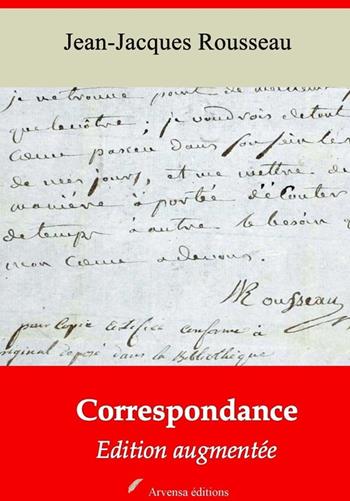 Jean-Jacques Rousseau
je ne trouve point de
que le nôtre ; je voudrois de tout
Cœur passer dans son sein le
de mes jours, et me mettre de
manière à portée d'écouter
de temps à autre le besoin
mon Cœur a de vous.
Rousseau
pour Copie conforme à
original déposé dans la Bibliothèque
Correspondance
Edition augmentée
Arvensa éditions